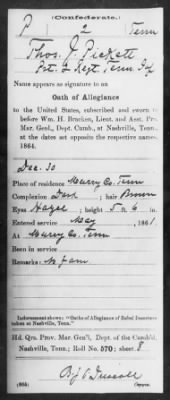 (Confederate.)
P 2 Tenn
Thos. J. Pickett
Pvt. 2 Regt. Tenn. Inf
Name appears as signature to an
Oath of Allegiance
to the United States, subscribed and sworn to
before Wm. H. Bracken, Lieut. and Asst. Pro.
Mar. Genl., Dept. Cumb., at Nashville, Tenn.,
at the dates set opposite the respective names.
1864.
Dec. 30
Place of residence Maury Co. Tenn
Complexion Dark ; hair Brown
Eyes Hazel ; height 5 ft. 6 in.
Entered service May , 1861
At Maury Co. Tenn
Been in service
Remarks:
Indorsement shows: "Oaths of Allegiance of Rebel Deserters
taken at Nashville, Tenn."
Hd. Qrs. Prov. Mar. Gen'l, Dept. of the Cumb'd,
Nashville, Tenn.; Roll No. 570; sheet 8
(655)
Driscoll
Copyist.